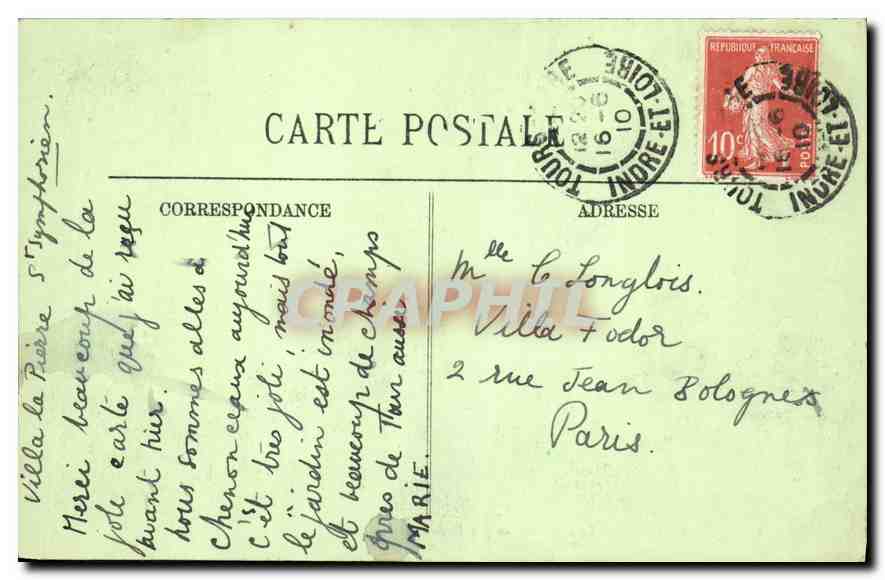 CARTE POSTALE
CORRESPONDANCE
ADRESSE
REPUBLIQUE FRANÇAISE
10c
POSTES
TOURS
12 20
16 - 6
10
INDRE-ET-LOIRE
TOURS
16 - 6
10
INDRE-ET-LOIRE
Villa la Pierre St Symphorien.
Merci beaucoup de la
jolie carte que j'ai reçu
avant hier.
nous sommes allés à
chenonceaux aujourd'hui
c'ét très joli, mais tout
le jardin est inondé,
et beaucoup de champs
près de Tour aussi
MARIE.
Mlle C Longlois.
Villa Fodor
2 rue Jean Bologne
Paris.
CPAPHIL